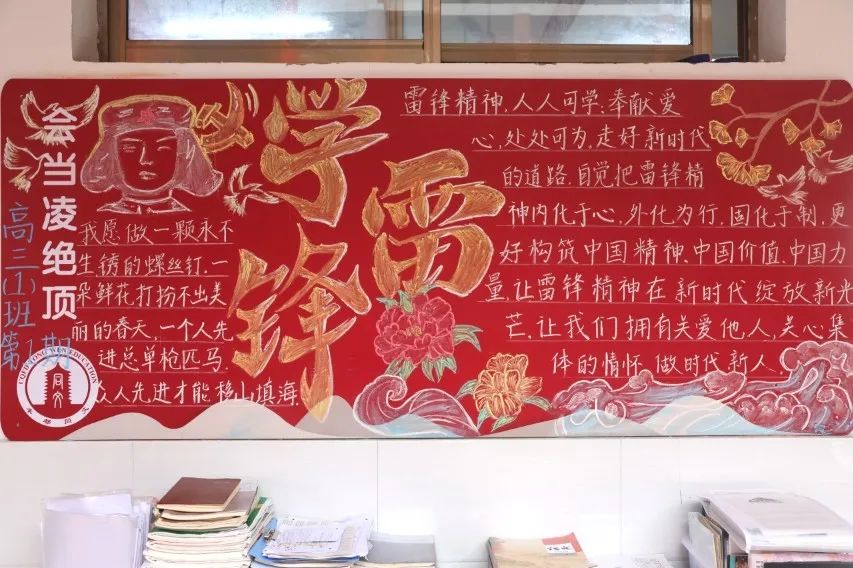 会当凌绝顶
高三(1)班
第1期
学雷锋
我愿做一颗永不
生锈的螺丝钉,一
朵鲜花打扮不出美
丽的春天,一个人先
进总单枪匹马,
众人先进才能移山填海.
雷锋精神,人人可学;奉献爱
心,处处可为,走好新时代
的道路,自觉把雷锋精
神内化于心,外化为行,固化于制,更
好构筑中国精神,中国价值,中国力
量,让雷锋精神在新时代绽放新光
芒,让我们拥有关爱他人,关心集
体的情怀,做时代新人.
同文